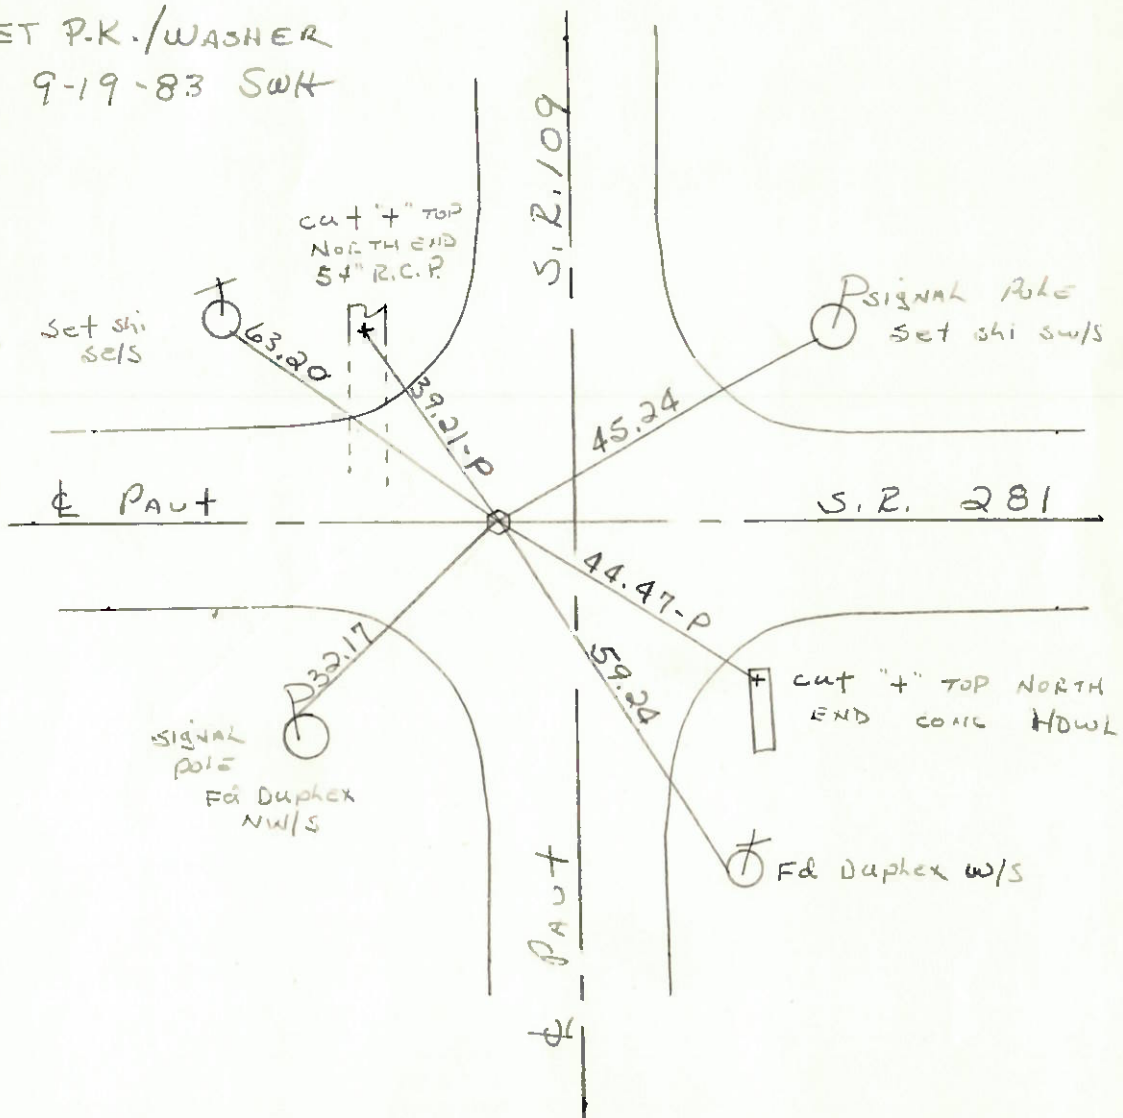 ET P.K./WASHER
9-19-83 SWH
S.R. 109
cut "+" TOP
NORTH END
54" R.C.P.
Set shi
se/s
63.20
39.21-P
SIGNAL POLE
Set shi sw/s
45.24
℄ PAVt
S.R. 281
44.47-P
59.24
32.17
cut "+" TOP NORTH
END CONC HDWL
SIGNAL
POLE
Fd Duplex
NW/S
Fd Duplex w/s
℄ PAVt